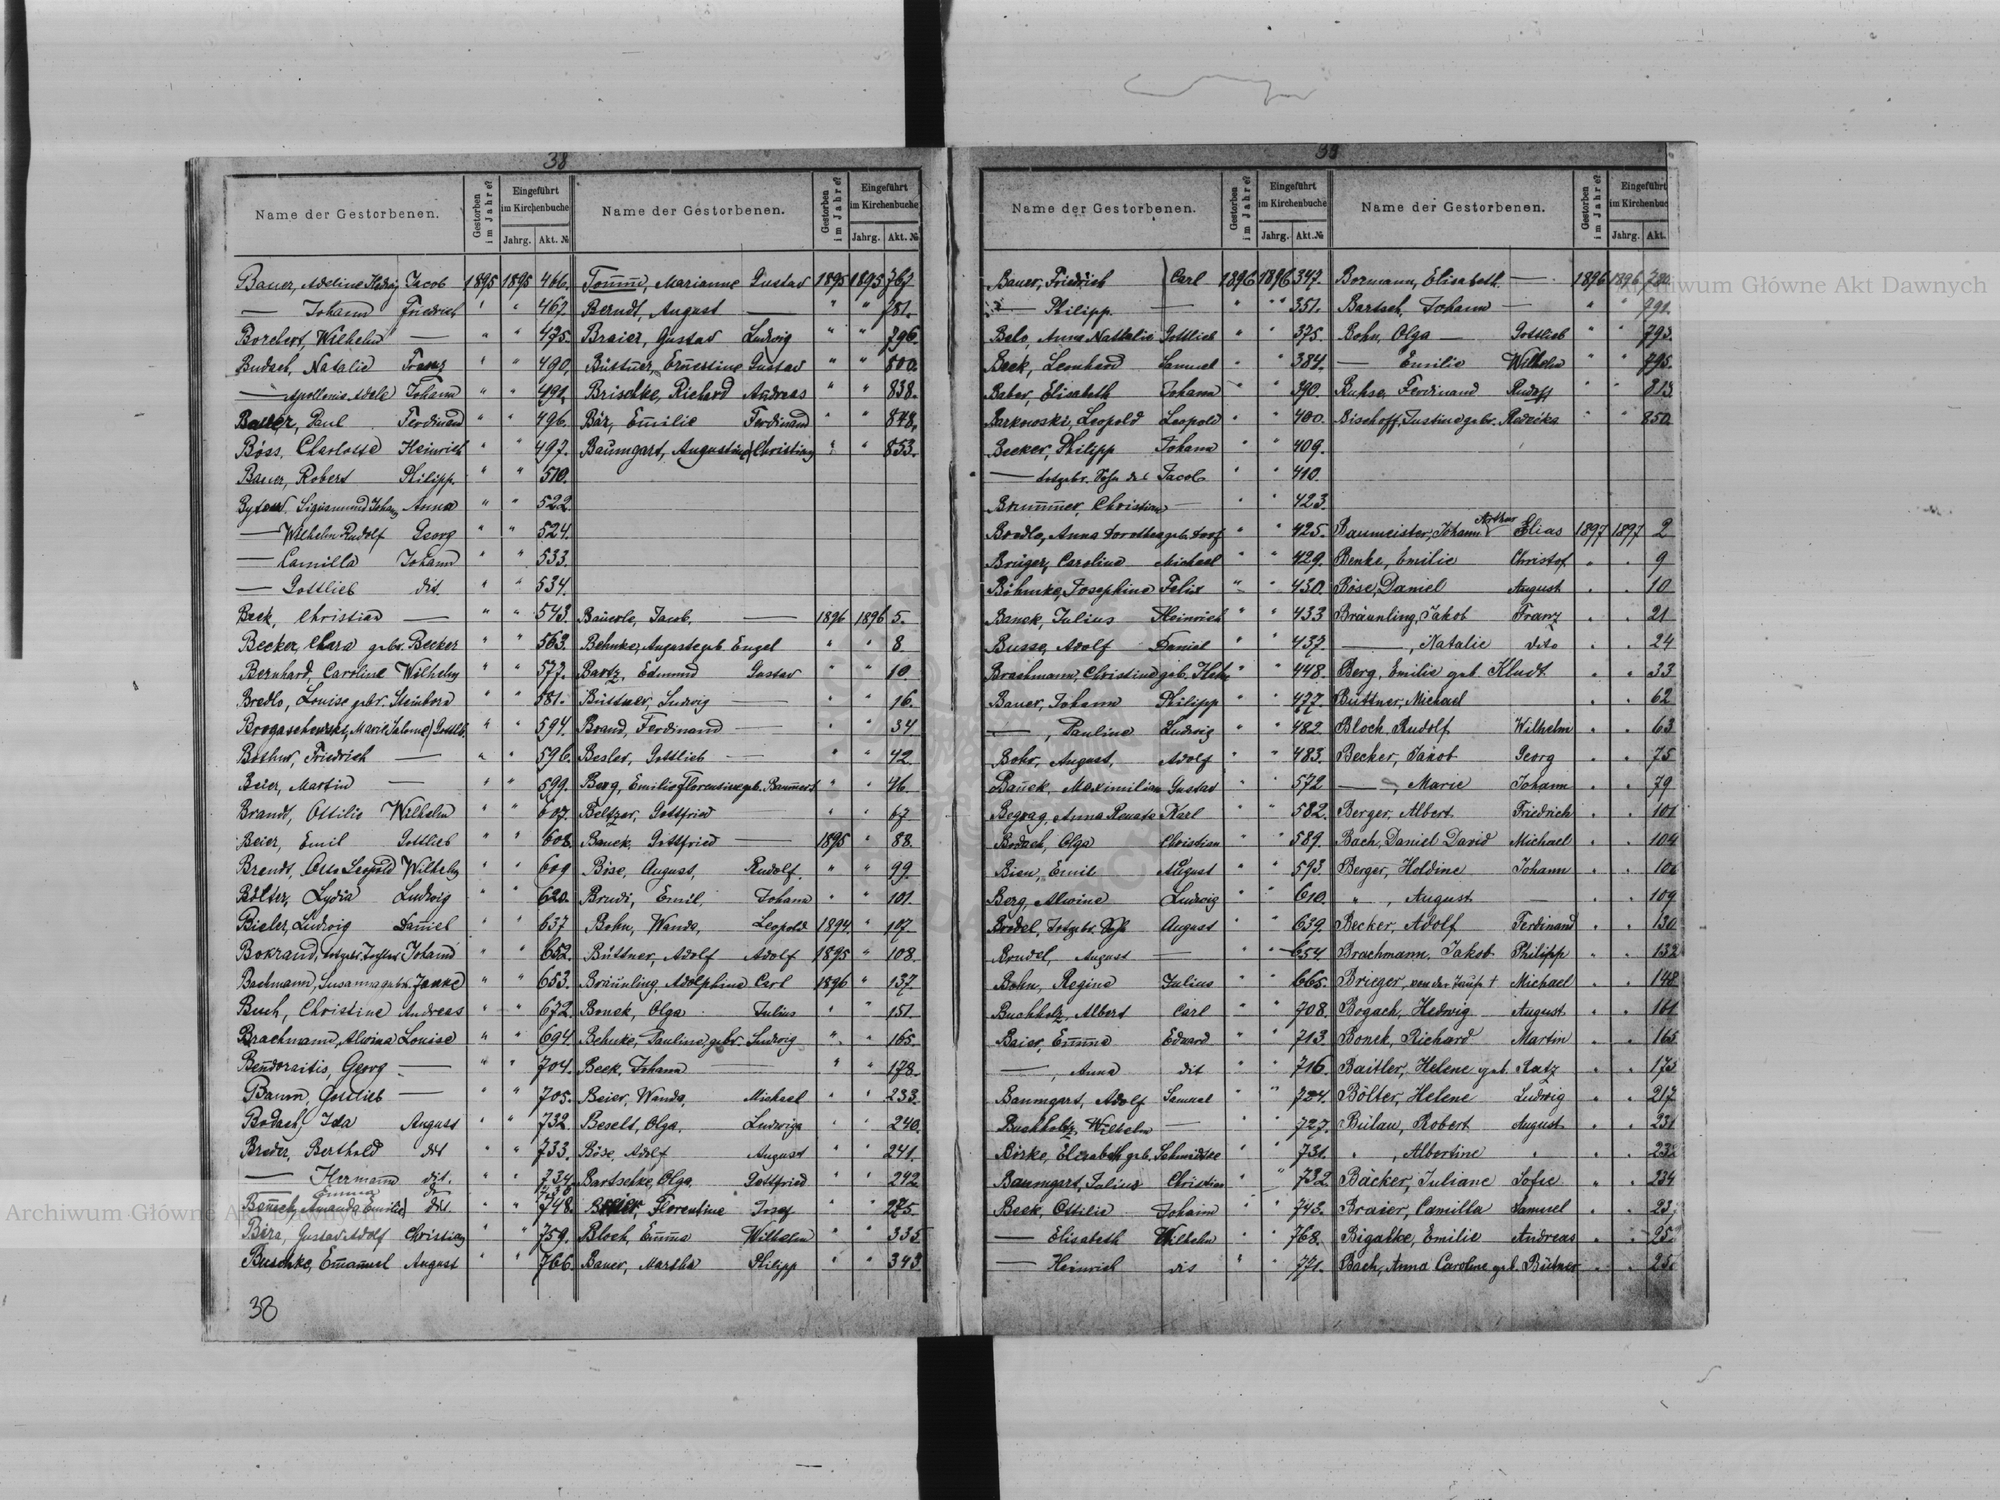 38
Name der Gestorbenen.
Gestorben im Jahre?
Eingeführt im Kirchenbuche
Jahrg. Akt. №
Bauer, Adeline Hedwig Jacob 1895 1895 466.
— Johann Friedrich " " 467.
Borchert, Wilhelm — " " 475.
Budach, Natalie Franz " " 490.
— Apollonia Adele Johann " " 492.
Bauer, Paul Ferdinand " " 496.
Böss, Charlotte Heinrich " " 497.
Bauer, Robert Philipp " " 510.
Sigismund Johann Anna " " 522.
— Wilhelm Rudolf Georg " " 524.
— Camilla Johann " " 533.
— Gottlieb dit. " " 534.
Beck, Christian — " " 543.
Becker, Clara gebr. Becker " " 563.
Bernhard, Caroline Wilhelm " " 577.
Bredlo, Louise gebr. Steinborn " " 581.
Marie Salome Gottlb. " " 594.
Friedrich — " " 596.
Beier, Martin " " 599.
Brandt, Ottilie Wilhelm " " 607.
Beier, Emil Gottlieb " " 608.
Brandt, Otto Leopold Wilhelm " " 609
Bölter, Lydia Ludwig " " 620.
Bieler, Ludwig Daniel " " 637
Bokrand, Johann " " 652.
Bachmann, Susanna gebr. Janke " " 653.
Buch, Christine Andreas " " 672.
Brachmann, Alwina Louise " " 694
Bendoraitis, Georg — " " 704.
Baum, Gottlieb — " " 705.
Bodach, Ida August " " 732.
Breder, Berthold dit " " 733.
— Hermann dit. " " 734
Amanda Emilie dit. " " 748.
Gustav Adolf Christian " " 759.
Buschke, Emanuel August " " 766.
38
Name der Gestorbenen.
Gestorben im Jahre?
Eingeführt im Kirchenbuche
Jahrg. Akt. №
Marianne Gustav 1895 1895 767
Berndt, August — " " 781.
Braier, Gustav Ludwig " " 796.
Büttner, Ernestine Gustav " " 800.
Brischke, Richard Andreas " " 838.
Bär, Emilie Ferdinand " " 848.
Baumgart, Augustine Christian " " 853.
Bäuerle, Jacob. — 1896 1896 5.
Behnke, Auguste geb. Engel " " 8
Bartz, Edmund Gustav " " 10.
Büttner, Ludwig — " " 16.
Brand, Ferdinand — " " 34
Besler, Gottlieb — " " 42
Berg, Emilie Florentine geb. " " 46.
Beltzer, Gottfried " " 67
Banek, Gottfried — 1895 " 88.
Böse, August, Rudolf. " " 99.
Brudi, Emil, Johann " " 101.
Bohn, Wanda, Leopold 1894. " 107
Büttner, Adolf Adolf 1895 " 108.
Bräunling, Adolphine Carl 1896 " 137.
Bonek, Olga Julius " " 151.
Behnke, Pauline, gebr. Ludwig " " 165.
Beck, Johann — " " 178.
Beier, Wanda, Michael " " 233.
Beselt, Olga. Ludwiga " " 240.
Böse, Adolf August " " 241.
Bartschke, Olga, Gottfried " " 242
Florentine Josef " " 275.
Bloch, Emma Wilhelm " " 335
Bauer, Martha Philipp " " 343.
39
Name der Gestorbenen.
Gestorben im Jahre?
Eingeführt im Kirchenbuche
Jahrg. Akt. №
Bauer, Friedrich Carl 1896 1896 347.
— Philipp — " " 351.
Belo, Anna Nathalie Gottlieb " " 375.
Beck, Leonhard Samuel " " 384.
Baber, Elisabeth Johann " " 390.
Barknoski, Leopold Leopold " " 400.
Becker, Philipp Johann " " 409.
— totgebr. Sohn des Jacob " " 410.
Brummer, Christian — " " 423.
Bredlo, Anna Dorothea geb. " " 425.
Brüger, Caroline Michael " " 429.
Böhnke, Josephine Felix " " 430.
Banek, Julius Heinrich " " 433
Busse, Adolf Daniel " " 437.
Brachmann, Christine geb. " " 448.
Bauer, Johann Philipp " " 477.
—, Pauline Ludwig " " 482.
Bohr, August, Adolf " " 483.
Banek, Maximilian Gustav " " 572
Anna Renata Karl " " 582.
Bodach, Olga Christian " " 589.
Bien, Emil August " " 593.
Berg, Alwine Ludwig " " 610.
Bredel, August " " 639.
Brudel, August — " " 654.
Bohn, Regine Julius " " 665.
Buchholz, Albert Carl " " 708.
Baier, Emma Edward " " 713.
—, Anna dit " " 716.
Baumgart, Adolf Samuel " " 724.
Buchholtz, Wilhelm — " " 727.
Börke, Elisabeth geb. Schmidtke " " 731.
Baumgart, Julius Christian " " 732
Beck, Ottilie Johann " " 743.
— Elisabeth Wilhelm " " 768.
— Heinrich dit " " 771.
Name der Gestorbenen.
Gestorben im Jahre?
Eingeführt im Kirchenbuc
Jahrg. Akt.
Bormann, Elisabeth — 1896 1896
Bartsch, Johann — " " 791.
Bohn, Olga — Gottlieb " " 793.
— Emilie Wilhelm " " 795.
Buhse, Ferdinand Rudolf " " 813
Bischoff, Justine gebr. " " 850.
Baumeister, Johann Arthur Elias 1897 1897 2
Benke, Emilie Christof " " 9
Böse, Daniel August " " 10
Bräunling, Jakob Franz " " 21
—, Natalie dito " " 24
Berg, Emilie geb. Kludt " " 33
Büttner, Michael " " 62
Bloch Rudolf Wilhelm " " 63
Becker, Jakob Georg " " 75
—, Marie Johann " " 79
Berger, Albert Friedrich " " 101
Bach, Daniel David Michael " " 104
Berger, Holdine Johann " " 106
", August — " " 109
Becker, Adolf Ferdinand " " 130
Brachmann, Jakob Philipp " " 132
Brieger, vor der Taufe † Michael " " 148
Bogach, Hedwig August " " 161
Bonek, Richard Martin " " 165
Baitler, Helene geb. Ratz " " 175
Bölter, Helene Ludwig " " 217
Bülau, Robert August " " 231
", Albertine " " " 232
Bäcker, Juliane Sofie " " 234
Braier, Camilla Samuel " " 23
Bigalke, Emilie Andreas " " 25
Bach, Anna Caroline geb. Bütner " " 25
Archiwum Główne Akt Dawnych
Archiwum Główne Akt Dawnych